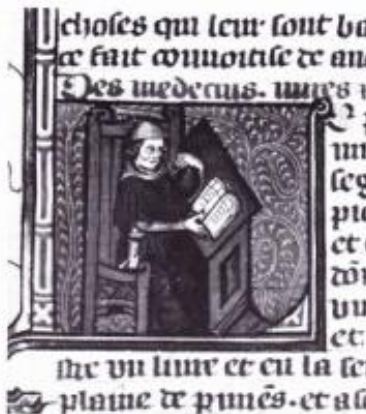 choses qui leur sont ba
ce fait couuoitise de au
Des medecins. mires
seg
pie
et
dõ
vu
et
stre vn liure et en la se
plaine de pumẽs. et a so